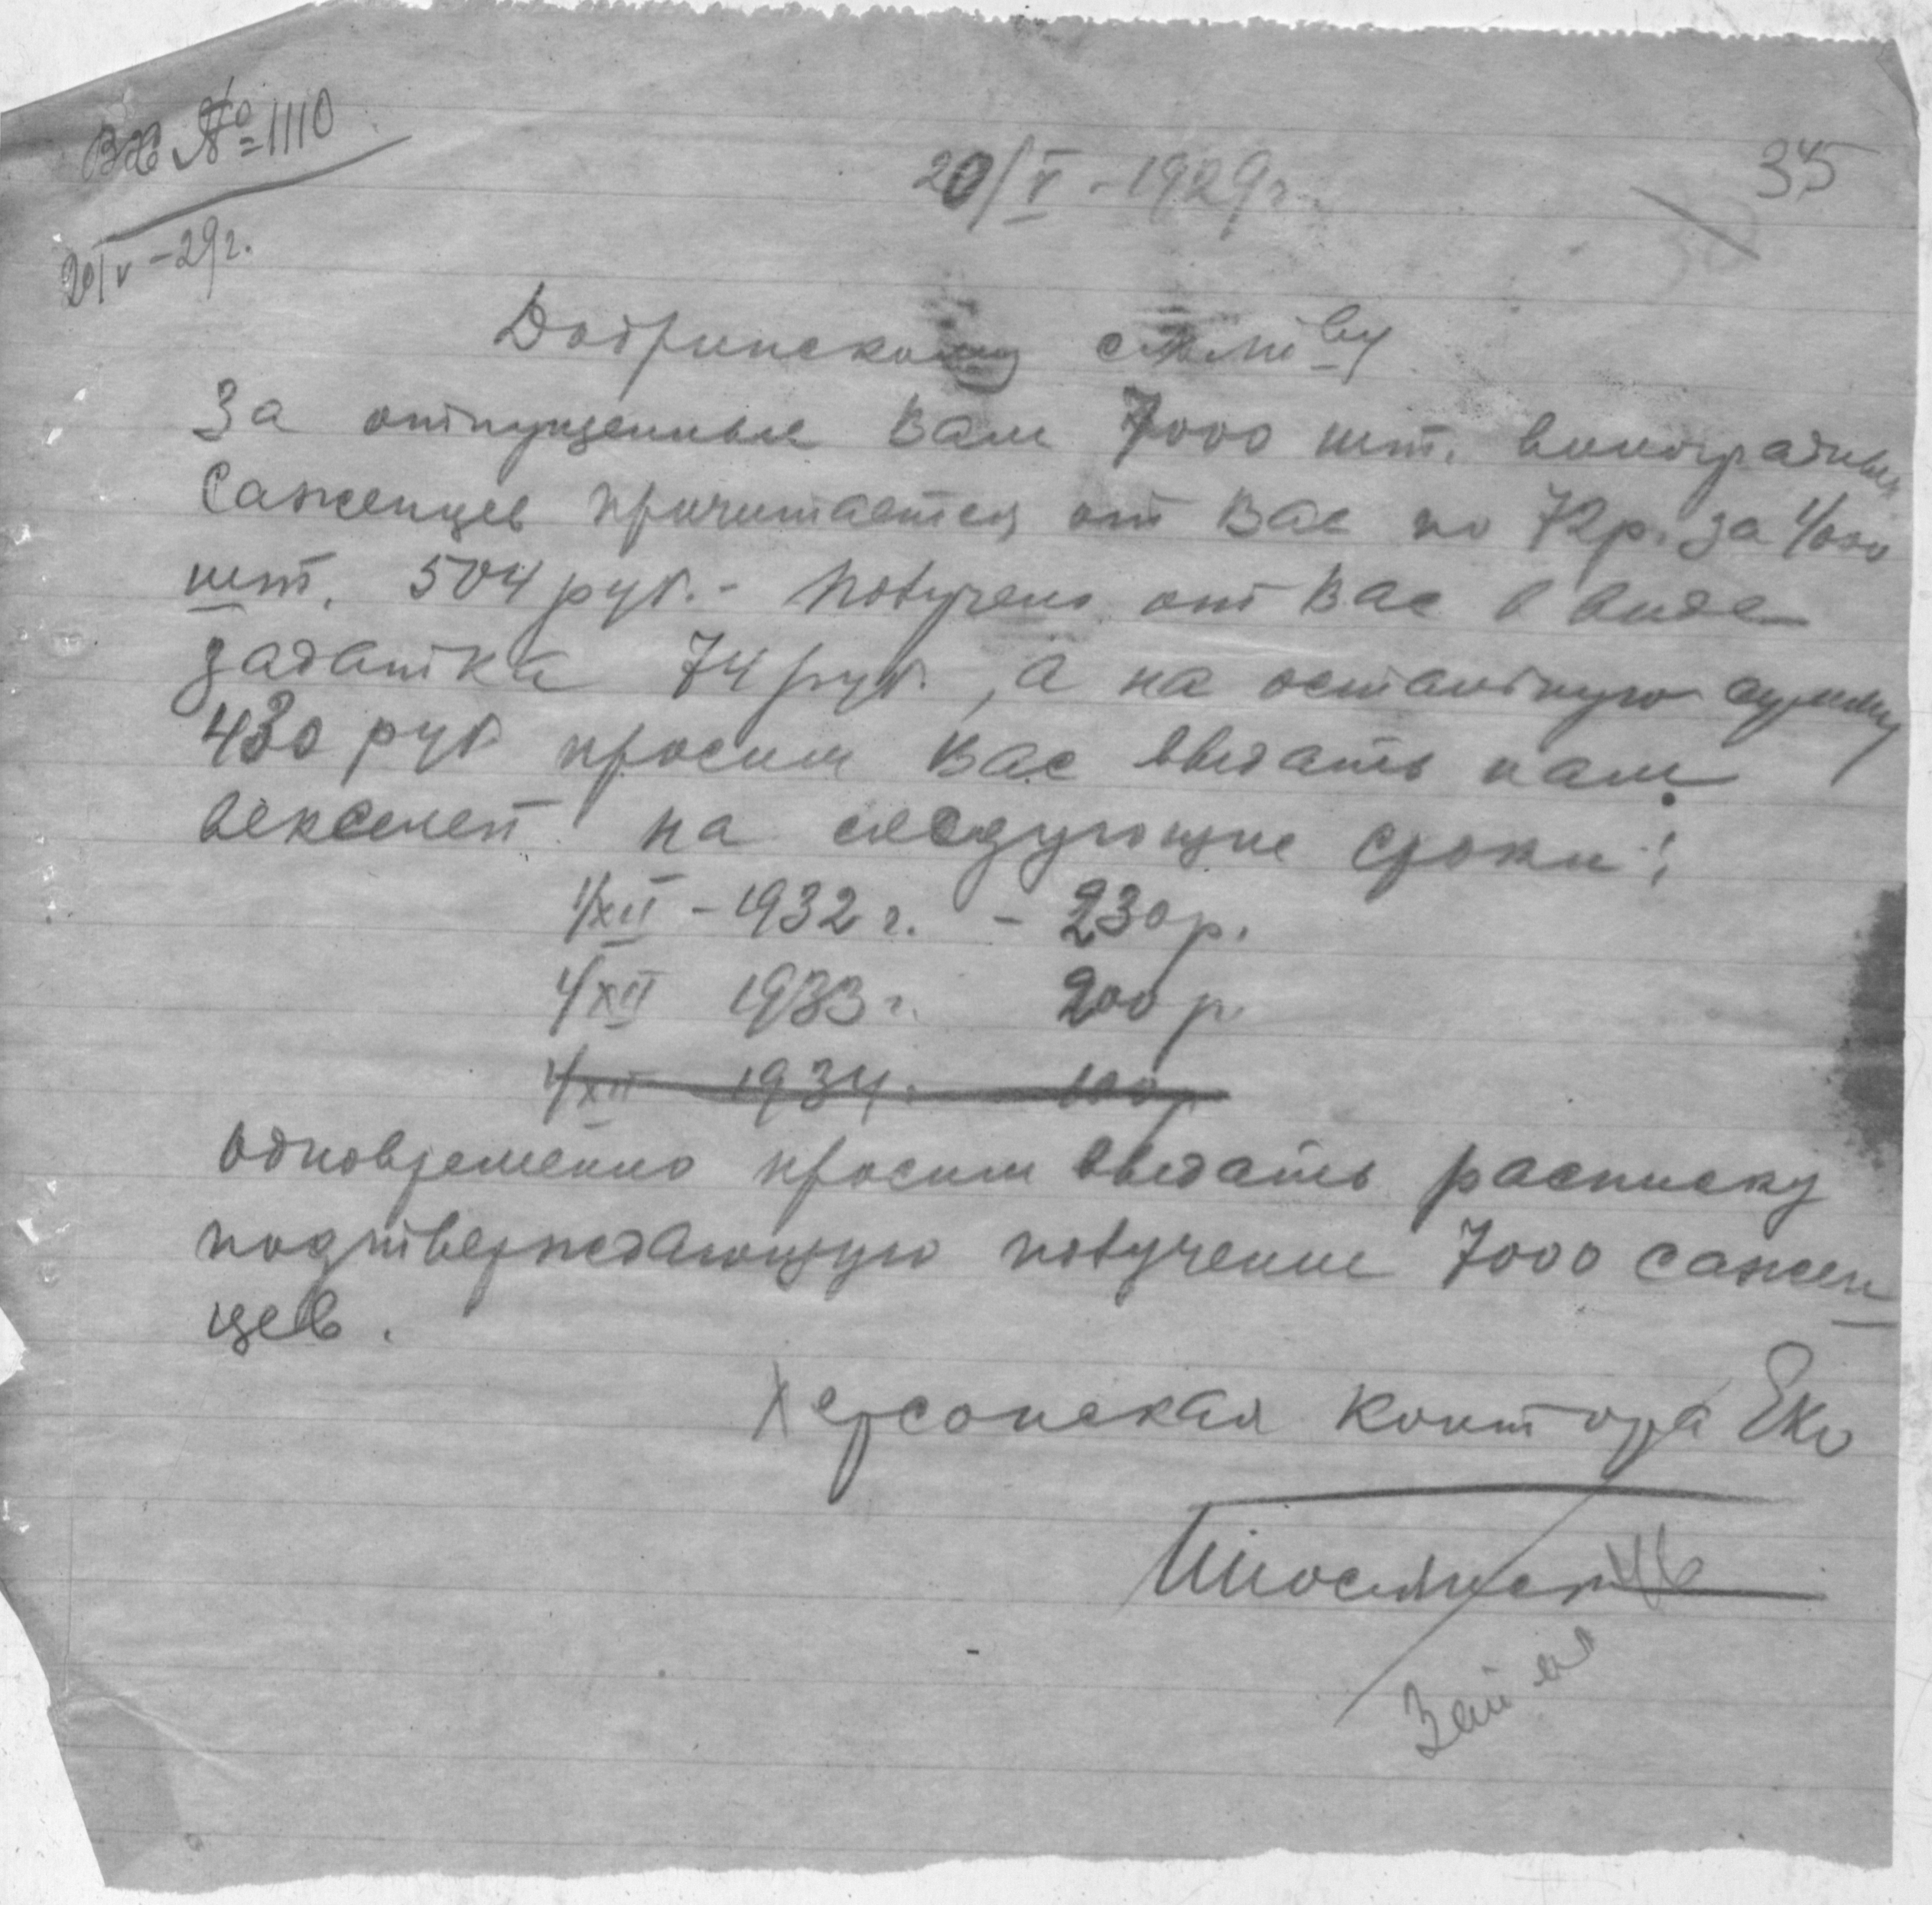 Вх № 1110
20/V – 29г.
20/V – 1929г.
345
Добринскому с
За отпущенные Вам 7000 шт. виноградных
Саженцев причитается от Вас по 72р. за 1/000
шт. 504 руб. – Получено от Вас в виде
задатка 74 руб., а на остальную сумму
430 руб просим Вас выдать нам
векселей на следующие сроки:
1/XII – 1932 г. – 230 р.
1/XII 1933 г. 200 р.
1/XII 1934. 100 р
Одновременно просим выдать расписку
подтверждающую получение 7000 сажен
цев.
Херсонская Контора Еко